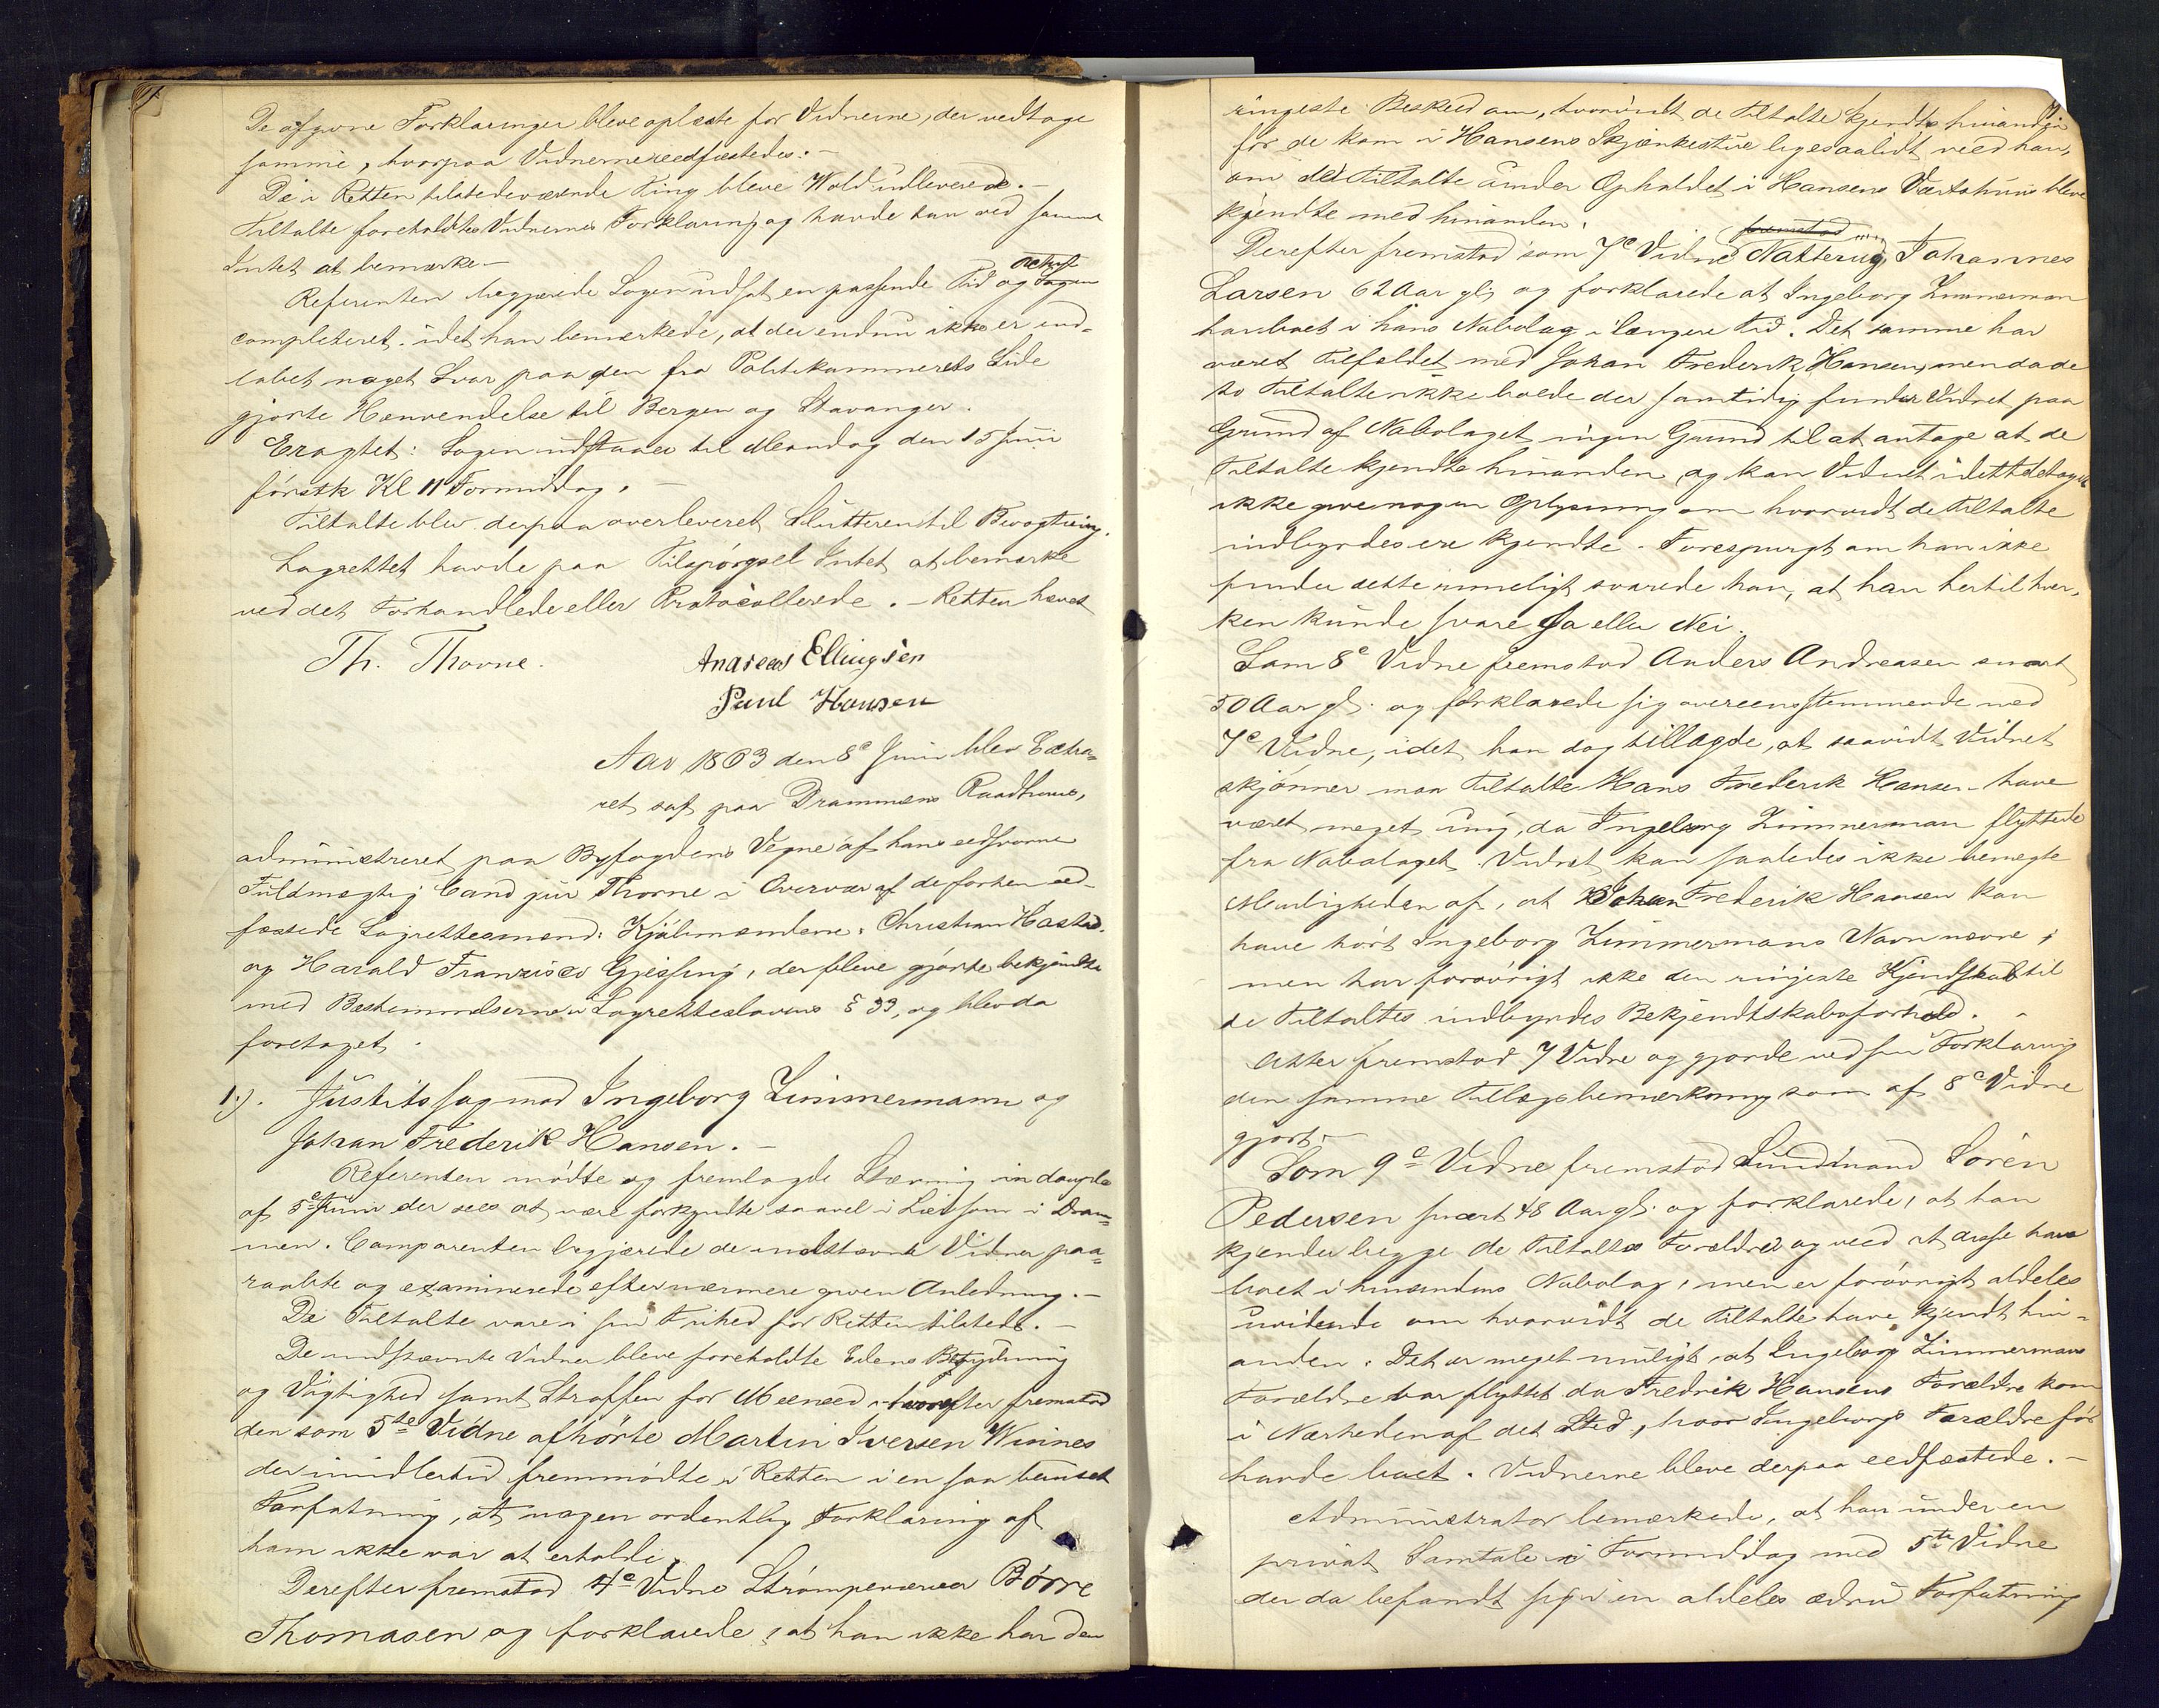 De afgivne Forklaringer bleve oplæste for Vidnerne, der vedtoge
samme, hvorpaa Vidnerne eedfæstedes.-
De i Retten tilstedeværende Ting bleve Wold udleverede.-
Tiltalte foreholdtes Vidnernes Forklaring og havde han ved samme
Intet at bemærke-
Referenten begjærede Sagen udsat en passende Tid og Sagen
completeret idet han bemærkede, at der endnu ikke er ind-
løbet noget Svar paa den fra Politikammerets Side
gjorte Henvendelse til Bergen og Stavanger.
Eragtet: Sagen udstaaer til Mandag den 15 Juni
førstk Kl 11 Formiddag.-
Tiltalte blev derpaa overleveret Slutteren til Bevogtning.
Lagrettet havde paa Tilspørgsel Intet at bemærke
ved det Forhandlede eller Protocollerede.- Retten hævet
Th. Thorne. Andreas Ellingsen
Paul Hansen
Aar 1863 den 8e Juni blev Extra-
ret sat paa Drammens Raadhuus,
administreret paa Byfogdens Vegne af hans eedsvorne
Fuldmægtig Cand jur Thorne i Overvær af de forhen eed-
fæstede Lagrettesmænd: Kjøbmændene: Christian Hastad.
og Harald Franzisco Gjessing, der bleve gjorte bekjendte
med Bestemmelserne i Lagretteslovens § 33, og blev da
foretaget.
1). Justitssag mod Ingeborg Zimmermann og
Johan Frederik Hansen.-
Referenten mødte og fremlagde Stævning in duplo
af 5e Juni der sees at være forkyndte saavel i Lier som i Dram-
men. Comparenten begjærede de indstævnte Vidner paa-
raabte og examinerede efter nærmere given Anledning.-
De Tiltalte vare i sin Frihed for Retten tilstede.-
De indstævnte Vidner bleve foreholdte Edens Betydning
og Vigtighed samt Straffen for Meeneed, hvorefter fremstod
den som 5te Vidne afhørte Martin Iversen Winnes
der imidlertid fremmødte i Retten i en saa beruset
Forfatning, at nogen ordentlig Forklaring af
ham ikke var at erholde.
Derefter fremstod 4e Vidne Strømpevæver Börre
Thomasen og forklarede, at han ikke har den
ringeste Beskeed om, hvorvidt de Tiltalte kjendte hinanden
før de kom i Hansens Skjænkestue ligesaalidt veed han,
om de Tiltalte under Opholdet i Hansens Værtshuus bleve
kjendte med hinanden.
Derefter fremstod som 7e Vidne Natterug Johannes
Larsen 62 Aar gl. og forklarede at Ingeborg Zimmerman
har boet i hans Nabolag i længere Tid. Det samme har
været Tilfældet med Johan Frederik Hansen, men da de
to Tiltalte ikke boede der samtidig finder Vidnet paa
Grund af Nabolaget ingen Grund til at antage at de
Tiltalte kjendte hinanden og kan Vidnet idethele
ikke give nogen Oplysning om hvorvidt de Tiltalte
indbyrdes ere kjendte. Forespurgt om han ikke
finder dette rimeligt svarede han, at han hertil hver,
ken kunde svare Ja eller Nei.
Som 8e Vidne fremstod Anders Andreasen snart
50 Aar gl. og forklarede sig overeensstemmende med
7e Vidne, idet han dog tillagde, at saavidt Vidnet
skjønner maa Tiltalte Hans Frederik Hansen have
været meget ung, da Ingeborg Zimmerman flyttede
fra Nabolaget. Vidnet kan saaledes ikke benegte
Muligheden af, at Johan Frederik Hansen kan
have hørt Ingeborg Zimmermans Navn nævne,
men har forøvrigt ikke den ringeste Kjendskab til
de Tiltaltes indbyrdes Bekjendtskabsforhold.-
Atter fremstod 7 Vidne og gjorde ved sin Forklaring
den samme Tillægsbemærkning som af 8e Vidne
gjort.-
Som 9e Vidne fremstod Sundmand Søren
Pedersen snart 48 Aar gl. og forklarede, at han
kjender begge de Tiltaltes Forældre og veed at disse have
boet i hinandens Nabolag, men er forøvrigt aldeles
uvidende om hvorvidt de Tiltalte have kjendt hin-
anden. Det er meget muligt at Ingeborg Zimmermans
Forældre var flyttet da Fredrik Hansens Forældre kom
i Nærheden af det Sted, hvor Ingeborgs Forældre før
havde boet. Vidnerne bleve derpaa eedfæstede.-
Administrator bemærkede, at han under en
privat Samtale i Formiddag med 5te Vidne
der da befandt sig i en aldeles ædru Forfatning